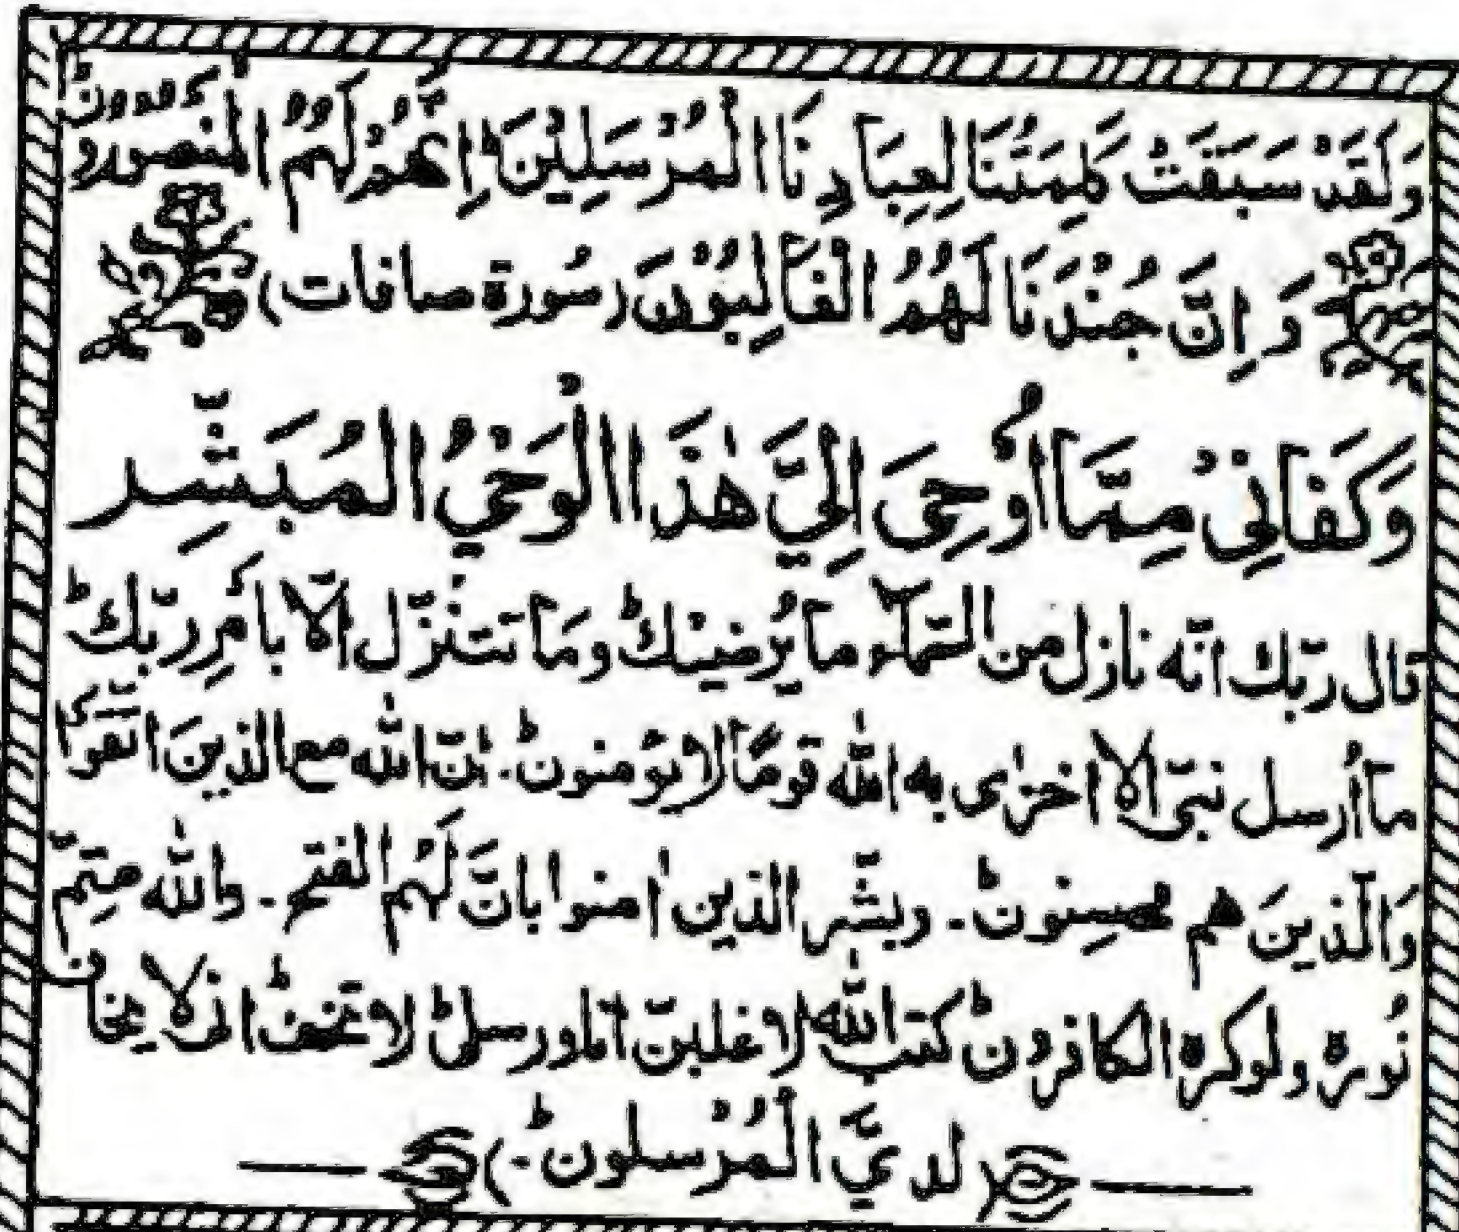 وَلَقَدْ سَبَقَتْ كَلِمَتُنَا لِعِبَادِنَا الْمُرْسَلِيْنَ ؕ اِنَّهُمْ لَهُمُ الْمَنْصُوْرُوْنَ
وَ اِنَّ جُنْدَنَا لَهُمُ الْغَالِبُوْنَ (سُورة صافات)
وَكَفَانِیْ مِمَّا اُوْحِیَ اِلَیَّ هٰذَا الْوَحْیُ الْمُبَشِّر
قال ربّك انّه نازل من السّمآء ما يُرضيك ؕ وما نتنزّل الّا بامرِ ربّك ؕ
ما أُرسل نبیّ الّا اخزٰی به اللّٰه قومًا لا يؤمنون ؕ۔ انّ اللّٰه مع الذينَ اتّقَوا
وَالّذينَ هم محسِنون ؕ۔ وبشّر الذين اٰمنوا بانّ لَهُم الفتح۔ واللّٰه متِمّ
نُوره ولو كره الكافرون ؕ كتب اللّٰه لاغلبنّ انا ورسلی ؕ لا تخف انّی لا يخاف
(لدیَّ الْمُرْسلون ؕ۔)